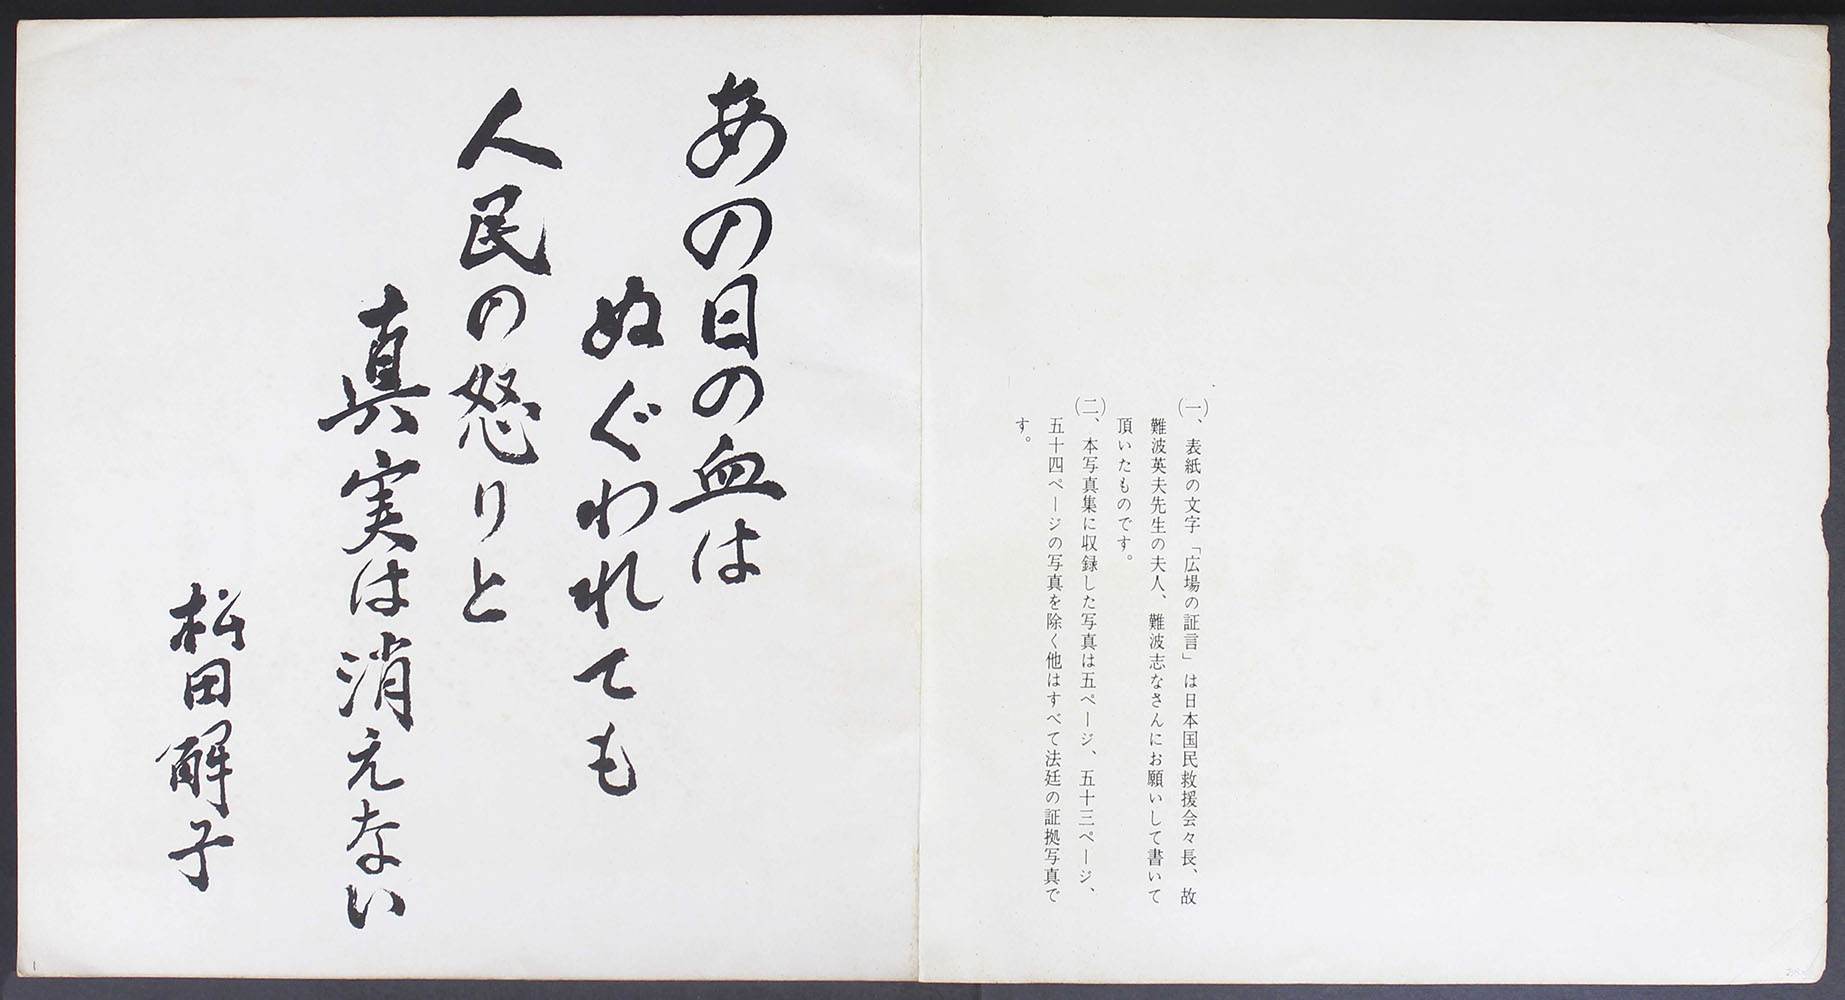 ㈠、表紙の文字「広場の証言」は日本国民救援会々長、故
難波英夫先生の夫人、難波志なさんにお願いして書いて
頂いたものです。
㈡、本写真集に収録した写真は五ページ、五十三ページ、
五十四ページの写真を除く他はすべて法廷の証拠写真で
す。
あの日の血は
ぬぐわれても
人民の怒りと
真実は消えない
松田解子